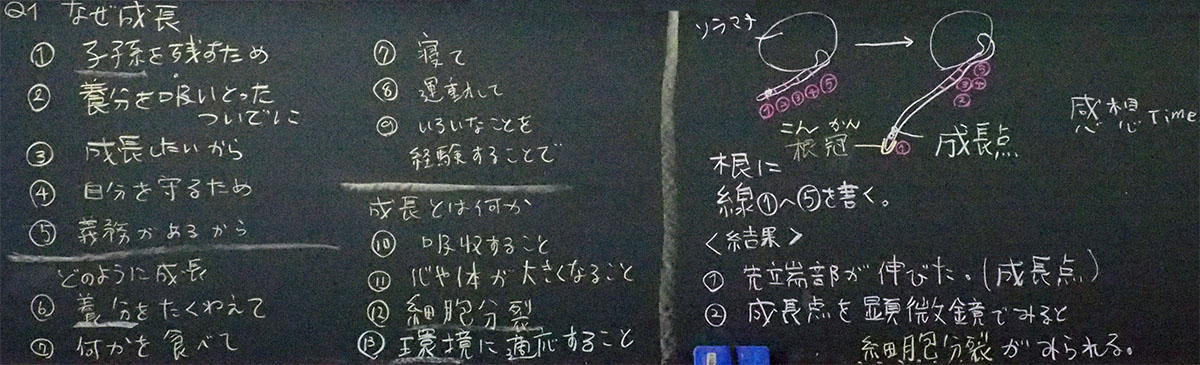 Q1 なぜ成長
① 子孫を残すため
② 養分を吸いとった
ついでに
③ 成長したいから
④ 自分を守るため
⑤ 義務があるから
どのように成長
⑥ 養分をたくわえて
⑦ 何かを食べて
⑦ 寝て
⑧ 運動して
⑨ いろいなことを
経験することで
成長とは何か
⑩ 吸収すること
⑪ 心や体が大きくなること
⑫ 細胞分裂
⑬ 環境に適応すること
ソラマメ
①②③④⑤
⑤
③④
②
①
こんかん
根冠
成長点
根に
線①〜⑤を書く。
<結果>
① 先端部が伸びた。(成長点)
② 成長点を顕微鏡でみると
細胞分裂がみられる。
感想Time